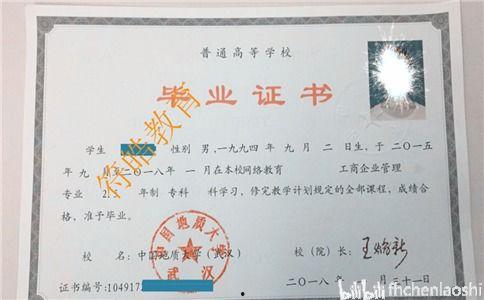 普通高等学校
毕业证书
学生 性别 男,一九九四年 九月 二日生,于二〇一五
年 九月至二〇一八年 一月在本校网络教育 工商企业管理
专业 2. 年制 专科 科学习,修完教学计划规定的全部课程,成绩合
格,准予毕业。
校 名:中国地质大学(武汉) 校(院)长:
证书编号:104917
二〇一八年 月三十一日
符皓教育
中国地质大学
武汉
bilibili fhchenlaoshi